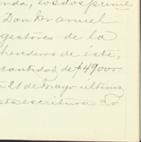 nda, los dos prime
Don Daniel
gestores de la
herederos de éste,
cantidad de $49000
21 de Mayo último
sta escritura. Lo